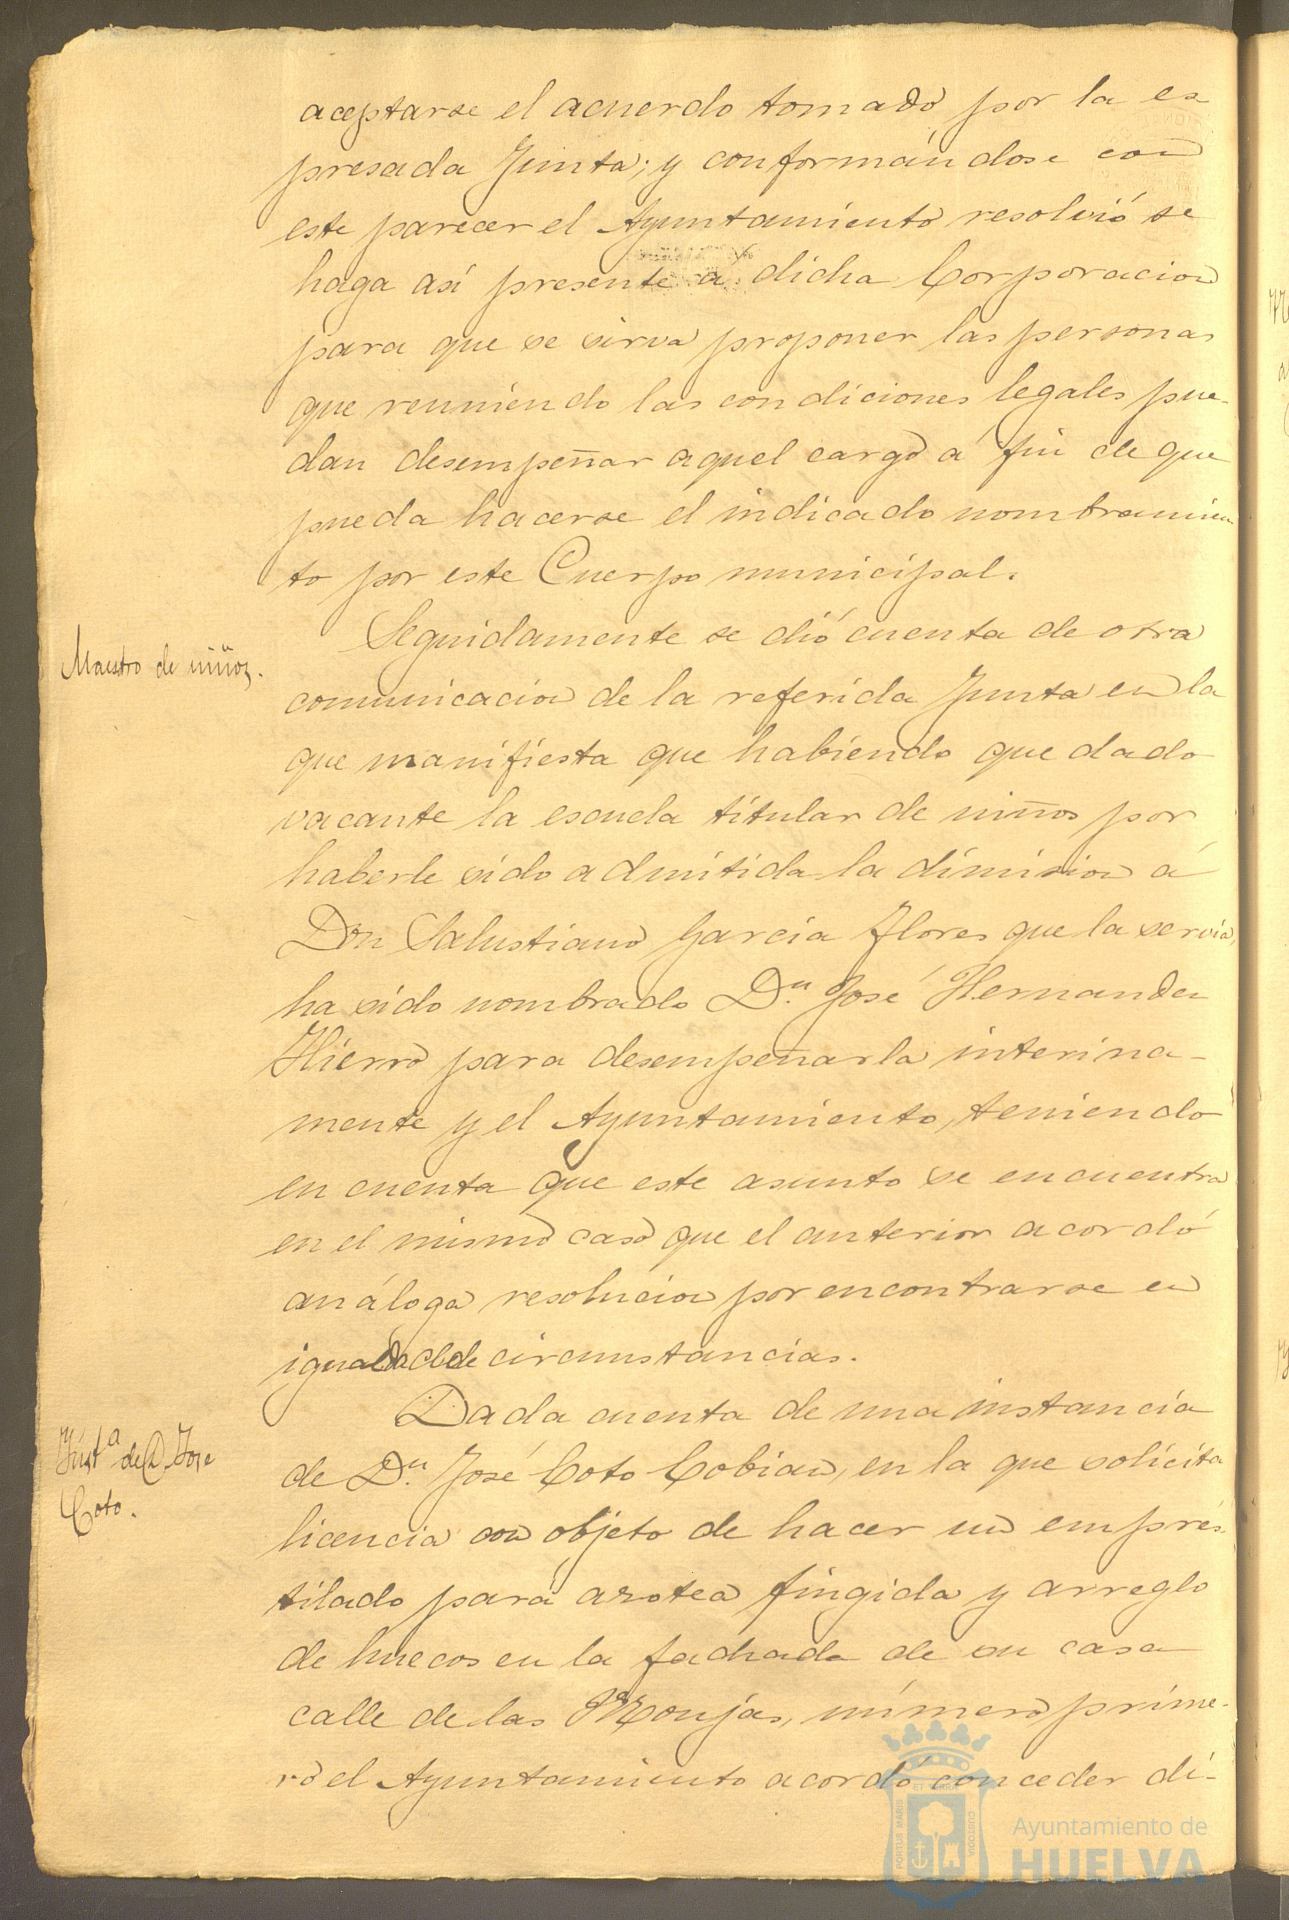 aceptarse el acuerdo tomado por la es
presada Junta; y conformándose con
este parecer el Ayuntamiento resolvió se
haga así presente á dicha Corporacion
para que se sirva proponer las personas
que reuniendo las condiciones legales pue-
dan desempeñar aquel cargo á fin de que
pueda hacerse el indicado nombramien
to por este Cuerpo municipal.
Maestro de niños.
Seguidamente se dió cuenta de otra
comunicacion de la referida Junta en la
que manifiesta que habiendo quedado
vacante la escuela titular de niños por
haberle sido admitida la dimision á
Don Salustiano Garcia Flores que la servia,
ha sido nombrado Dn. José Hernandez
Hierro para desempeñarla interina-
mente y el Ayuntamiento, teniendo
en cuenta que este asunto se encuentra
en el mismo caso que el anterior acordó
análoga resolucion por encontrarse en
igualdad de circunstancias.
Insta de D. Jose
Coto.
Dada cuenta de una instancia
de Dn. José Coto Cobian, en la que solicita
licencia con objeto de hacer un emprés-
tilado para azotea fingida y arreglo
de huecos en la fachada de su casa
calle de las Monjas, número prime-
ro el Ayuntamiento acordó conceder di-
PORTUS MARIS ET TERRAE CUSTODIA
Ayuntamiento de
HUELVA